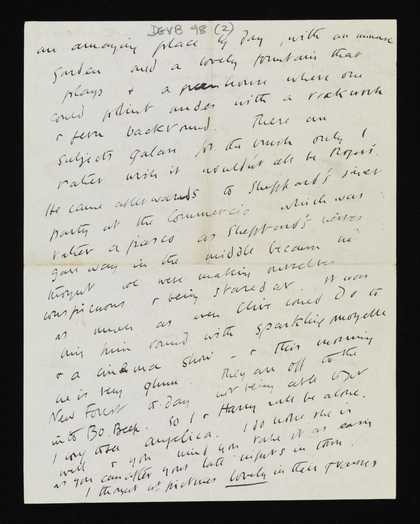 DEVB 98 (2)
an amazing place by day, with an immense
garden and a lovely fountain that
plays & a greenhouse where one
could paint nudes with a rockwork
& fern background. There are
subjects galore for the brush only I
rather wish it wouldn't all be Roger's.
He came afterwards to Sheppard's
party at the Commercio which was
rather a fiasco as Sheppard's
gave way in the middle because he
thought we were making ourselves
conspicuous & being stared at. It was
as much as even Clive could do to
bring him round with sparkling moselle
& a cinema show - & this morning
he is very glum. They are off to the
New Forest to-day not being able to get
into Bo Beep. So I & Harry will be alone.
I long to see Angelica. I do hope she is
well & you & mind you take it as easy
as you can after your late nights in town.
I thought yr pictures lovely in their frames